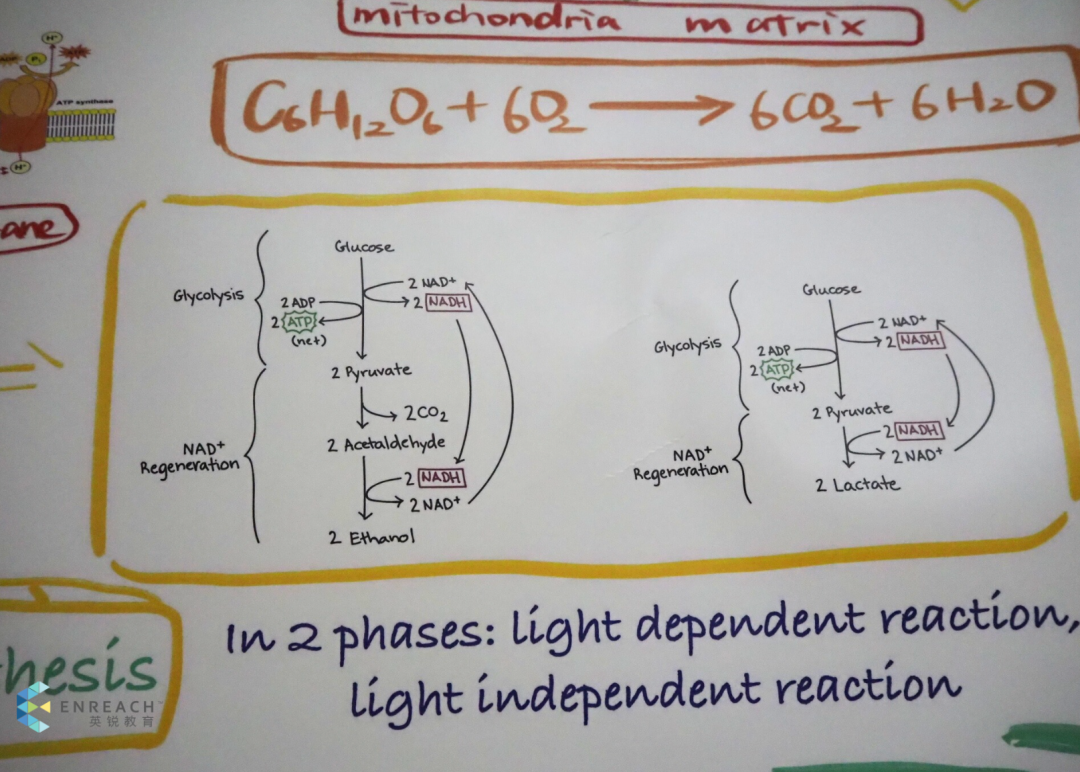 mitochondria matrix
H+
Pi
ATP synthase
H+
C6H12O6 + 6O2 → 6CO2 + 6H2O
ane
Glucose
Glycolysis
2 NAD+
2 NADH
2 ADP
2 ATP
(net)
2 Pyruvate
2 CO2
2 Acetaldehyde
NAD+
Regeneration
2 NADH
2 NAD+
2 Ethanol
Glucose
Glycolysis
2 NAD+
2 NADH
2 ADP
2 ATP
(net)
2 Pyruvate
2 NADH
2 NAD+
NAD+
Regeneration
2 Lactate
hesis
In 2 phases: light dependent reaction,
light independent reaction
ENREACH™
英锐教育